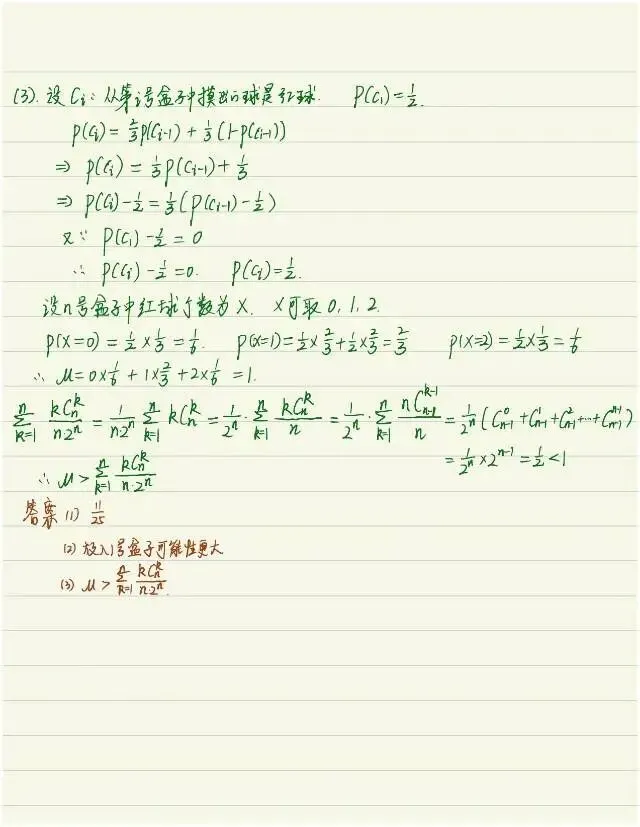 (3). 设 Cᵢ: 从第i号盒子中摸出的球是红球. P(C₁)=1/2.
P(Cᵢ) = 2/3 P(Cᵢ₋₁) + 1/3 (1-P(Cᵢ₋₁))
⇒ P(Cᵢ) = 1/3 P(Cᵢ₋₁) + 1/3
⇒ P(Cᵢ) - 1/2 = 1/3 (P(Cᵢ₋₁) - 1/2)
又∵ P(C₁) - 1/2 = 0
∴ P(Cᵢ) - 1/2 = 0. P(Cᵢ) = 1/2.
设n号盒子中红球个数为X. X可取 0, 1, 2.
P(X=0) = 1/2 × 1/3 = 1/6. P(X=1) = 1/2 × 2/3 + 1/2 × 2/3 = 2/3 P(X=2) = 1/2 × 1/3 = 1/6
∴ μ = 0×1/6 + 1×2/3 + 2×1/6 = 1.
∑_{k=1}^{n} kC_n^k/(n2^n) = 1/(n2^n) ∑_{k=1}^{n} kC_n^k = 1/2^n · ∑_{k=1}^{n} kC_n^k/n = 1/2^n · ∑_{k=1}^{n} nC_{n-1}^{k-1}/n = 1/2^n (C_{n-1}^0 + C_{n-1}^1 + C_{n-1}^2 + ··· + C_{n-1}^{n-1})
= 1/2^n × 2^{n-1} = 1/2 < 1
∴ μ > ∑_{k=1}^{n} kC_n^k/(n·2^n)
答案 (1) 11/25
(2) 放入1号盒子可能性更大
(3) μ > ∑_{k=1}^{n} kC_n^k/(n2^n).